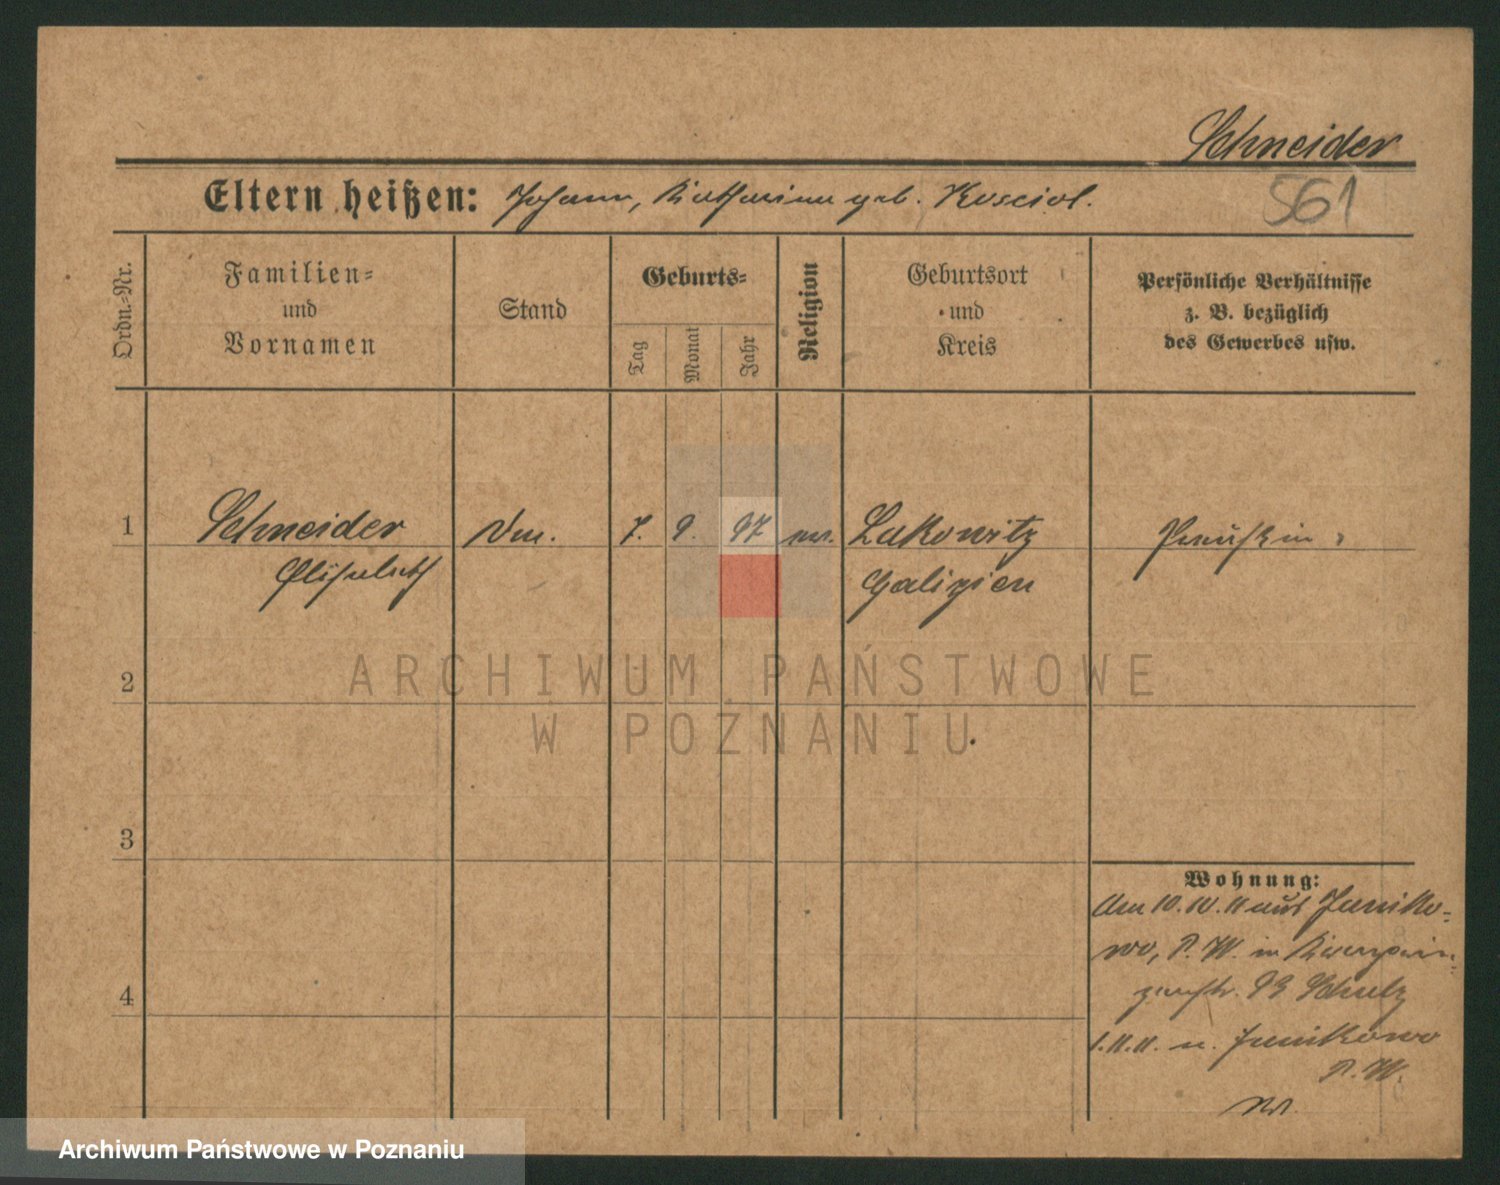 Schneider
Eltern heißen: Johann, Katharina geb. Kosciol.
561
Ordn.=Nr.
Familien=
und
Vornamen
Stand
Geburts=
Tag
Monat
Jahr
Religion
Geburtsort
und
Kreis
Persönliche Verhältnisse
z. B. bezüglich
des Gewerbes usw.
1 Schneider 7. 9. 97 Lakowitz Preußin
Elisabeth Galizien
ARCHIWUM PAŃSTWOWE
2
W POZNANIU
3
Wohnung:
Am 10. 10. 11 aus Juniko=
wo, P. W. in
4
str. Schulz
1. 11. 11. n. Junikowo
P. W.
Archiwum Państwowe w Poznaniu